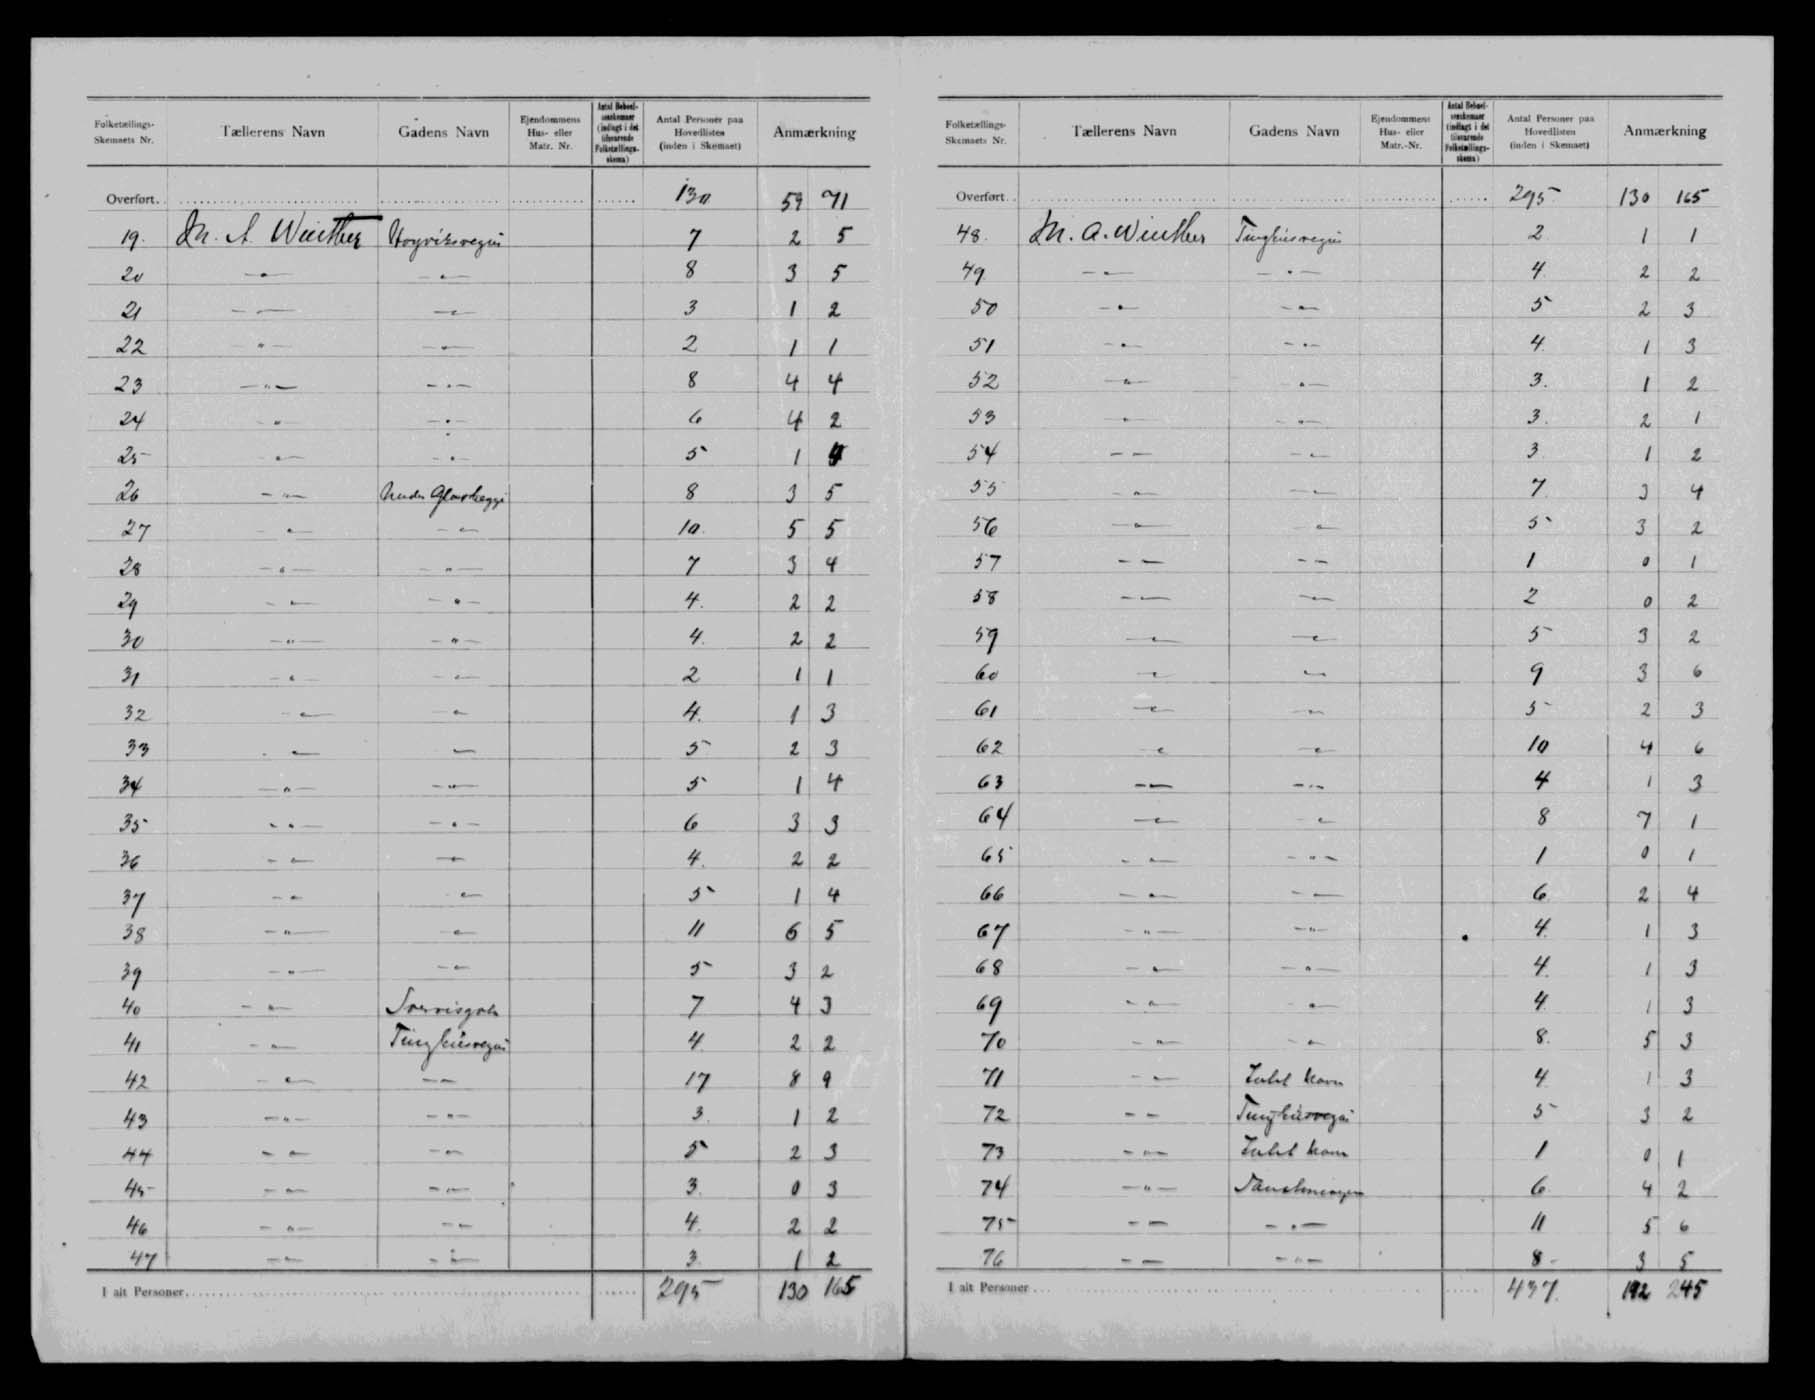 Folketællings-Skemaets Nr. Tællerens Navn Gadens Navn Ejendommens Hus- eller Matr. Nr. Antal Beboelsesskemaer (indlagt i det tilsvarende Folketællings-skema) Antal Personer paa Hovedlisten (inden i Skemaet) Anmærkning
Overført. 130 59 71
19. M. A. Winther Hoyviksvegur 7 2 5
20 -"- -"- 8 3 5
21 -"- -"- 3 1 2
22 -"- -"- 2 1 1
23 -"- -"- 8 4 4
24 -"- -"- 6 4 2
25 -"- -"- 5 1 4
26 -"- 8 3 5
27 -"- -"- 10. 5 5
28 -"- -"- 7 3 4
29 -"- -"- 4. 2 2
30 -"- -"- 4. 2 2
31 -"- -"- 2 1 1
32 -"- -"- 4. 1 3
33 -"- -"- 5 2 3
34 -"- -"- 5 1 4
35 -"- -"- 6 3 3
36 -"- -"- 4. 2 2
37 -"- -"- 5 1 4
38 -"- -"- 11 6 5
39 -"- -"- 5 3 2
40 -"- 7 4 3
41 -"- Tinghúsvegur 4. 2 2
42 -"- -"- 17 8 9
43 -"- -"- 3. 1 2
44 -"- -"- 5 2 3
45 -"- -"- 3. 0 3
46 -"- -"- 4. 2 2
47 -"- -"- 3. 1 2
I alt Personer 295 130 165
Folketællings-Skemaets Nr. Tællerens Navn Gadens Navn Ejendommens Hus- eller Matr.-Nr. Antal Beboelsesskemaer (indlagt i det tilsvarende Folketællings-skema) Antal Personer paa Hovedlisten (inden i Skemaet) Anmærkning
Overført. 295 130 165
48. M. A. Winther Tinghúsvegur 2 1 1
49 -"- -"- 4. 2 2
50 -"- -"- 5 2 3
51 -"- -"- 4. 1 3
52 -"- -"- 3. 1 2
53 -"- -"- 3. 2 1
54 -"- -"- 3. 1 2
55 -"- -"- 7. 3 4
56 -"- -"- 5 3 2
57 -"- -"- 1 0 1
58 -"- -"- 2 0 2
59 -"- -"- 5 3 2
60 -"- -"- 9 3 6
61 -"- -"- 5 2 3
62 -"- -"- 10 4 6
63 -"- -"- 4 1 3
64 -"- -"- 8 7 1
65 -"- -"- 1 0 1
66 -"- -"- 6 2 4
67 -"- -"- 4. 1 3
68 -"- -"- 4. 1 3
69 -"- -"- 4. 1 3
70 -"- -"- 8. 5 3
71 -"- Havn 4. 1 3
72 -"- Tinghúsvegur 5 3 2
73 -"- Havn 1 0 1
74 -"- 6 4 2
75 -"- -"- 11 5 6
76 -"- -"- 8 3 5
I alt Personer 437. 192 245